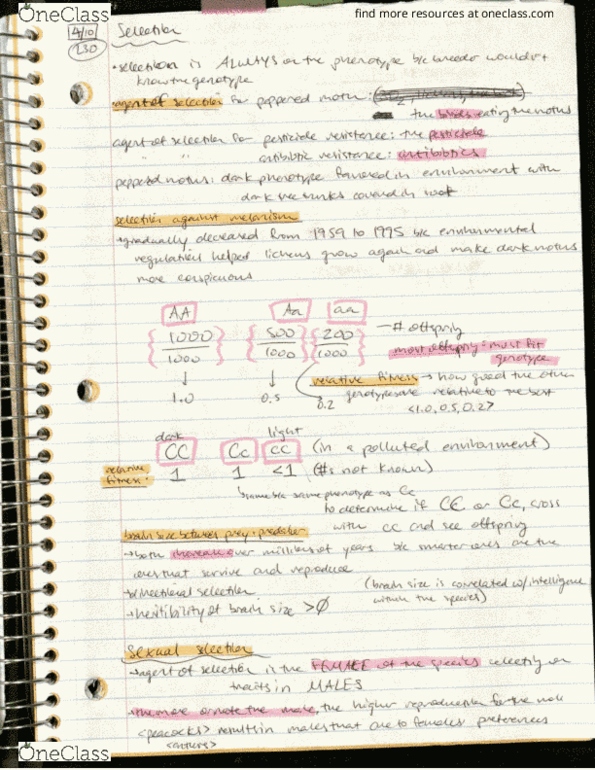 OneClass
find more resources at oneclass.com
4/10
L30
Selection
• selection is ALWAYS on the phenotype b/c breeder wouldn't
know the genotype
agent of selection for peppered moth:
the birds eating the moths
agent of selection for pesticide resistance: the pesticide
" " antibiotic resistance: antibiotics
pepped moths: dark phenotype favored in environment with
dark tree trunks covered in soot
selection against melanism
gradually decreased from 1959 to 1995 b/c environmental
regulation helped lichens grow again and make dark moths
more conspicuous
AA Aa aa
1000 500 200 — # offspring
1000 1000 1000 most offspring = most fit
genotype
relative fitness → how good the other
genotypes are relative to the best
1.0 0.5 0.2 <1.0, 0.5, 0.2>
dark light
CC Cc cc (in a polluted environment)
relative fitness: 1 1 <1 (#s not known)
same b/c same phenotype as Cc
to determine if CC or Cc, cross
with cc and see offspring
brain size between prey + predator
→ both increase over millions of years b/c smarter ones are the
ones that survive and reproduce
→ directional selection (brain size is correlated w/ intelligence
within the species)
→ heritibility of brain size > 0
Sexual selection
→ agent of selection is the FEMALE of the species selecting on
traits in MALES
→ the more ornate the male, the higher reproduction for the male
<peacocks> results in males that are to females preferences
OneClass